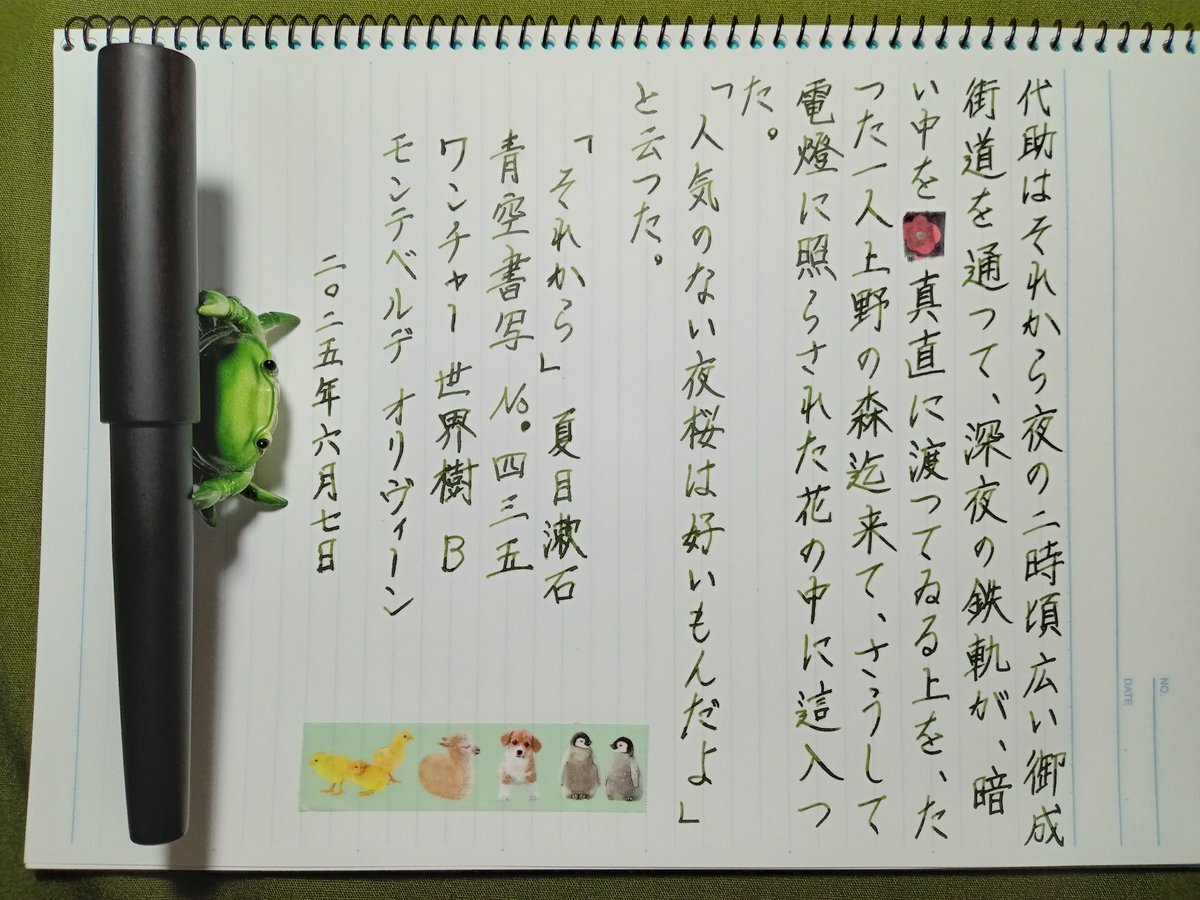 代助はそれから夜の二時頃広い御成
街道を通つて、深夜の鉄軌が、暗
い中を真直に渡つてゐる上を、た
つた一人上野の森迄来て、さうして
電燈に照らされた花の中に這入つ
た。
「人気のない夜桜は好いもんだよ」
と云つた。
「それから」 夏目漱石
青空書写 No.四三五
ワンチャー 世界樹 B
モンテベルデ オリヴィーン
二〇二五年六月七日
NO.
DATE